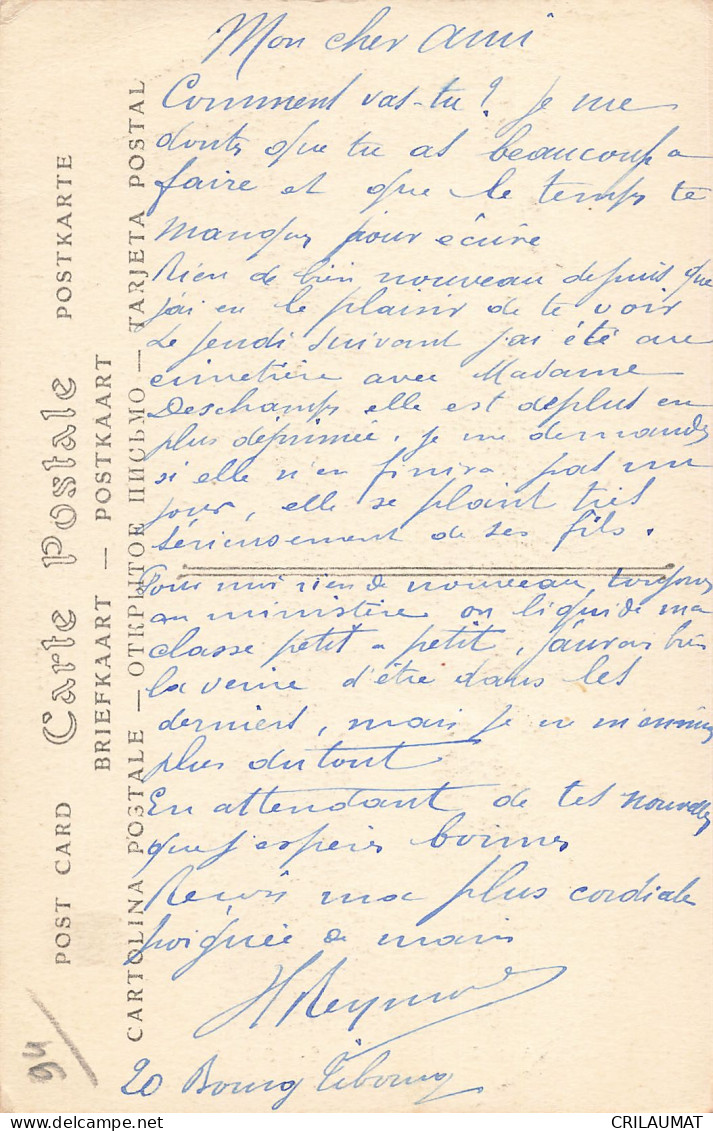 Mon cher ami
Comment vas-tu ? je me
doute que tu as beaucoup a
faire et que le temps te
manque pour écrire
Rien de bien nouveau depuis que
j'ai eu le plaisir de te voir
Le jeudi suivant j'ai été au
cimetière avec Madame
Deschamps elle est de plus en
plus déprimée, je me demande
si elle n'en finira pas un
jour, elle se plaint très
sérieusement de ses fils.
Pour moi rien de nouveau, toujours
au ministère on liquide ma
classe petit a petit, j'aurais bien
la veine d'être dans les
derniers, mais je ne m'ennuie
plus du tout
En attendant de tes nouvelles
que j'espère bonnes
Recois ma plus cordiale
poignée de main
20 Bourg Tibourg
POST CARD Carte Postale POSTKARTE
BRIEFKAART — POSTKAART
CARTOLINA POSTALE — ОТКРЫТОЕ ПИСЬМО — TARJETA POSTAL
94
delcampe.net
CRILAUMAT